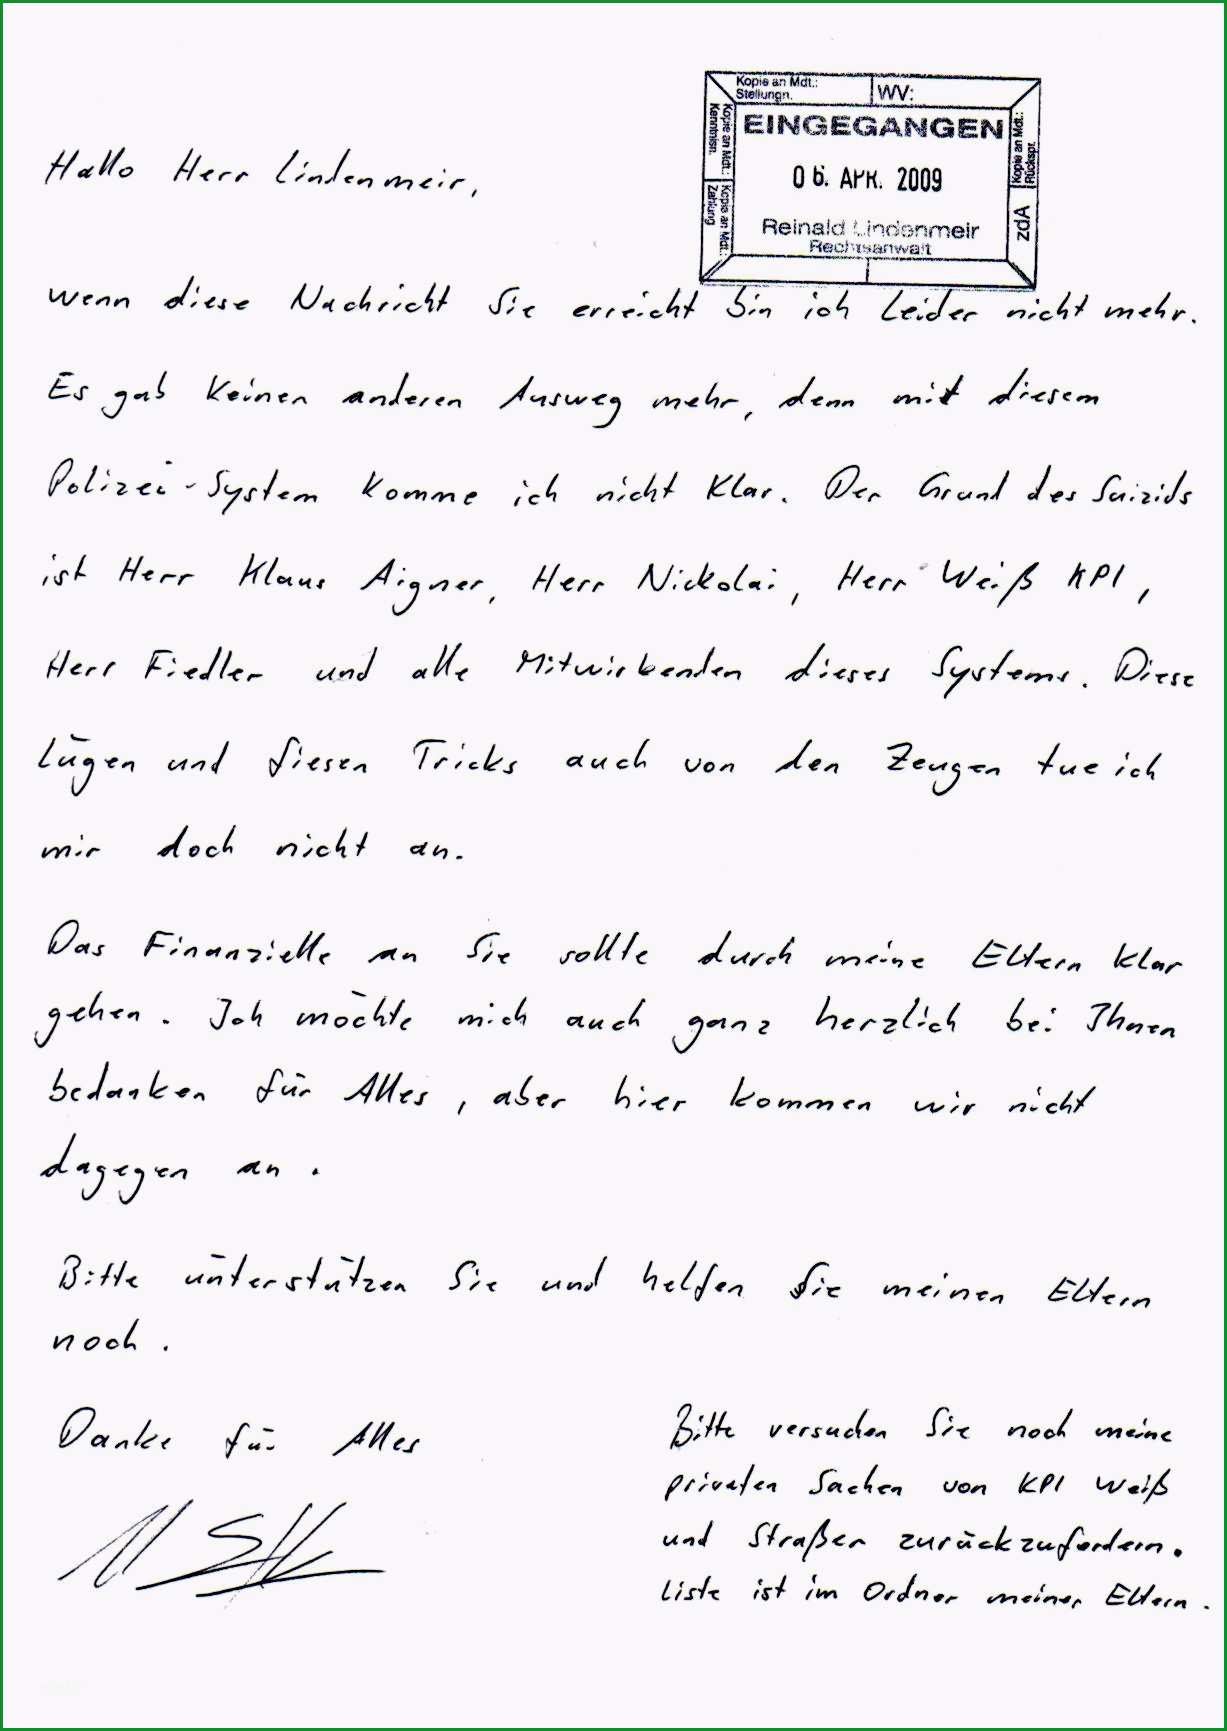 Kopie an Mdt.:
Stellungn.
WV:
Kopie an Mdt.:
Kenntnisn.
EINGEGANGEN
Kopie an Mdt.:
Rückspr.
06. APR. 2009
Kopie an Mdt.:
Zahlung
Reinald Lindenmeir
Rechtsanwalt
zdA
Hallo Herr Lindenmeir,
wenn diese Nachricht Sie erreicht bin ich Leider nicht mehr.
Es gab Keinen anderen Ausweg mehr, denn mit diesem
Polizei-System Komme ich nicht Klar. Der Grund des Suizids
ist Herr Klaus Aigner, Herr Nickolai, Herr Weiß KPI,
Herr Fiedler und alle Mitwirkenden dieses Systems. Diese
Lügen und fiesen Tricks auch von den Zeugen tue ich
mir doch nicht an.
Das Finanzielle an Sie sollte durch meine Eltern Klar
gehen. Ich möchte mich auch ganz herzlich bei Ihnen
bedanken für Alles, aber hier kommen wir nicht
dagegen an.
Bitte ünterstützen Sie und helfen Sie meinen Eltern
noch.
Danke für Alles
Bitte versuchen Sie noch meine
privaten Sachen von KPI Weiß
und Straßer zurückzufordern.
Liste ist im Ordner meiner Eltern.